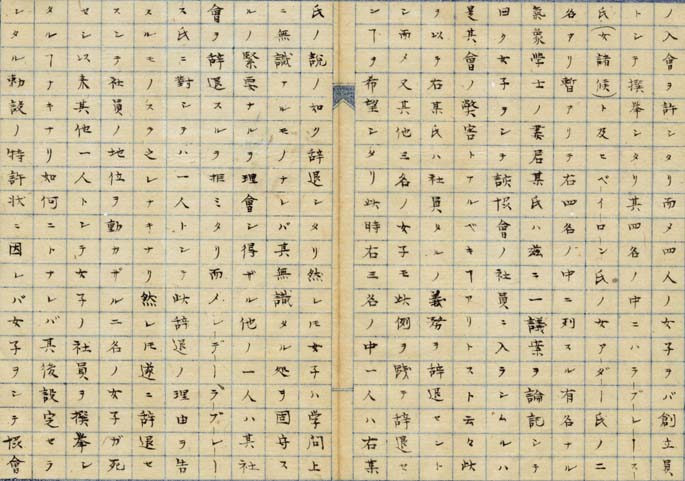 ノ入會ヲ許シタリ而メ四人ノ女子ヲバ創立員
トシテ撰挙シタリ其四名ノ中ニハラーブレース
氏(女諸候)ト及ヒベイロン氏ノ女アーダー氏ノ二
名アリ暫アリテ右四名ノ中ニ列スル有名ナル
氣象学士ノ居某氏ハ茲ニ一議案ヲ論記シテ
曰ク女子ヲシテ該恊會ノ社員ニ入ラシムルハ
是其會ノ弊害トアルベキヿアリトスト云々此
ヲ以テ右某氏ハ社員タルノ義務ヲ辞退セント
シ而メ又其他三名ノ女子モ此例ヲ踐テ辞退セ
ンヿヲ希望シタリ此時右三名ノ中一人ハ右某
氏ノ說ノ如リ辞退シタリ然レ𪜈女子ハ学問上
ニ無識ナルモノナレバ其無識タル処ヲ固守ス
ルノ緊要ナルヲ理會シ得ザル他ノ一人ハ其社
會ヲ辞退スルヲ拒ミタリ而メレーデーラブレー
ス氏ニ對シテハ一人トシテ此辞退ノ理由ヲ告
クルモノスラ之レナキナリ然レ𪜈遂ニ辞退セ
スシテ社員ノ地位ヲ動カザル二名ノ女子ガ死
セシ以来其他一人トシテ女子ノ社員ヲ撰挙シ
タルヿナキナリ如何ニトナレバ其後設定セラ
レタル勅設ノ特許状ニ因レバ女子ヲシテ恊會